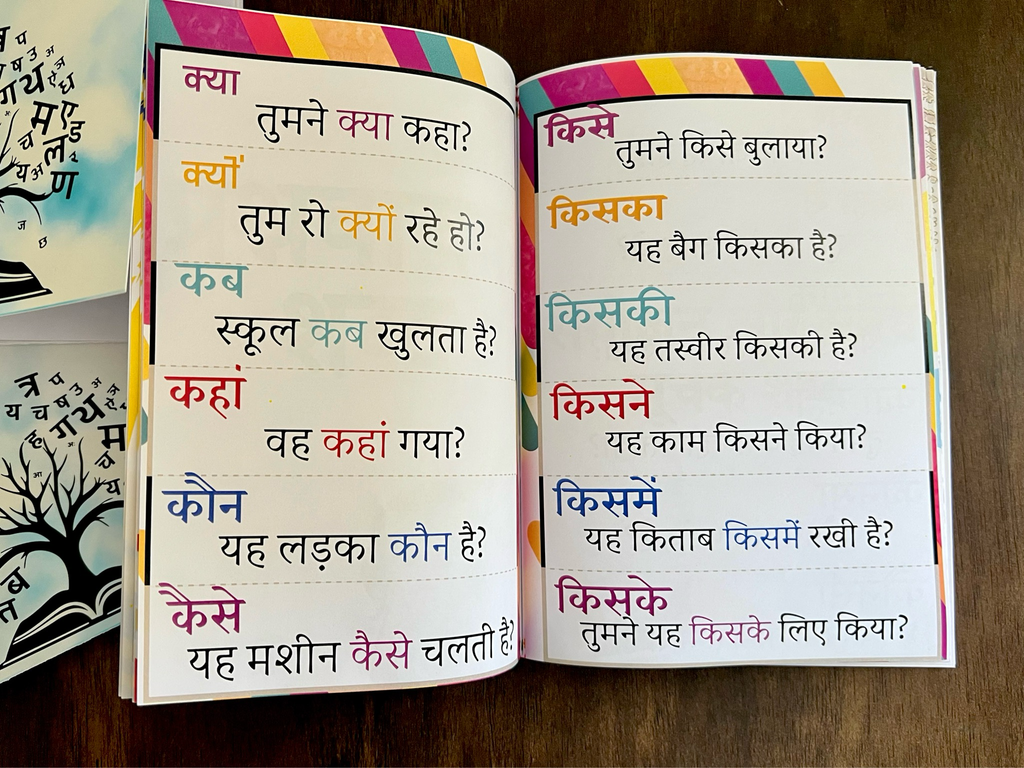 क्या
तुमने क्या कहा?
क्यों
तुम रो क्यों रहे हो?
कब
स्कूल कब खुलता है?
कहां
वह कहां गया?
कौन
यह लड़का कौन है?
कैसे
यह मशीन कैसे चलती है?
किसे
तुमने किसे बुलाया?
किसका
यह बैग किसका है?
किसकी
यह तस्वीर किसकी है?
किसने
यह काम किसने किया?
किसमें
यह किताब किसमें रखी है?
किसके
तुमने यह किसके लिए किया?